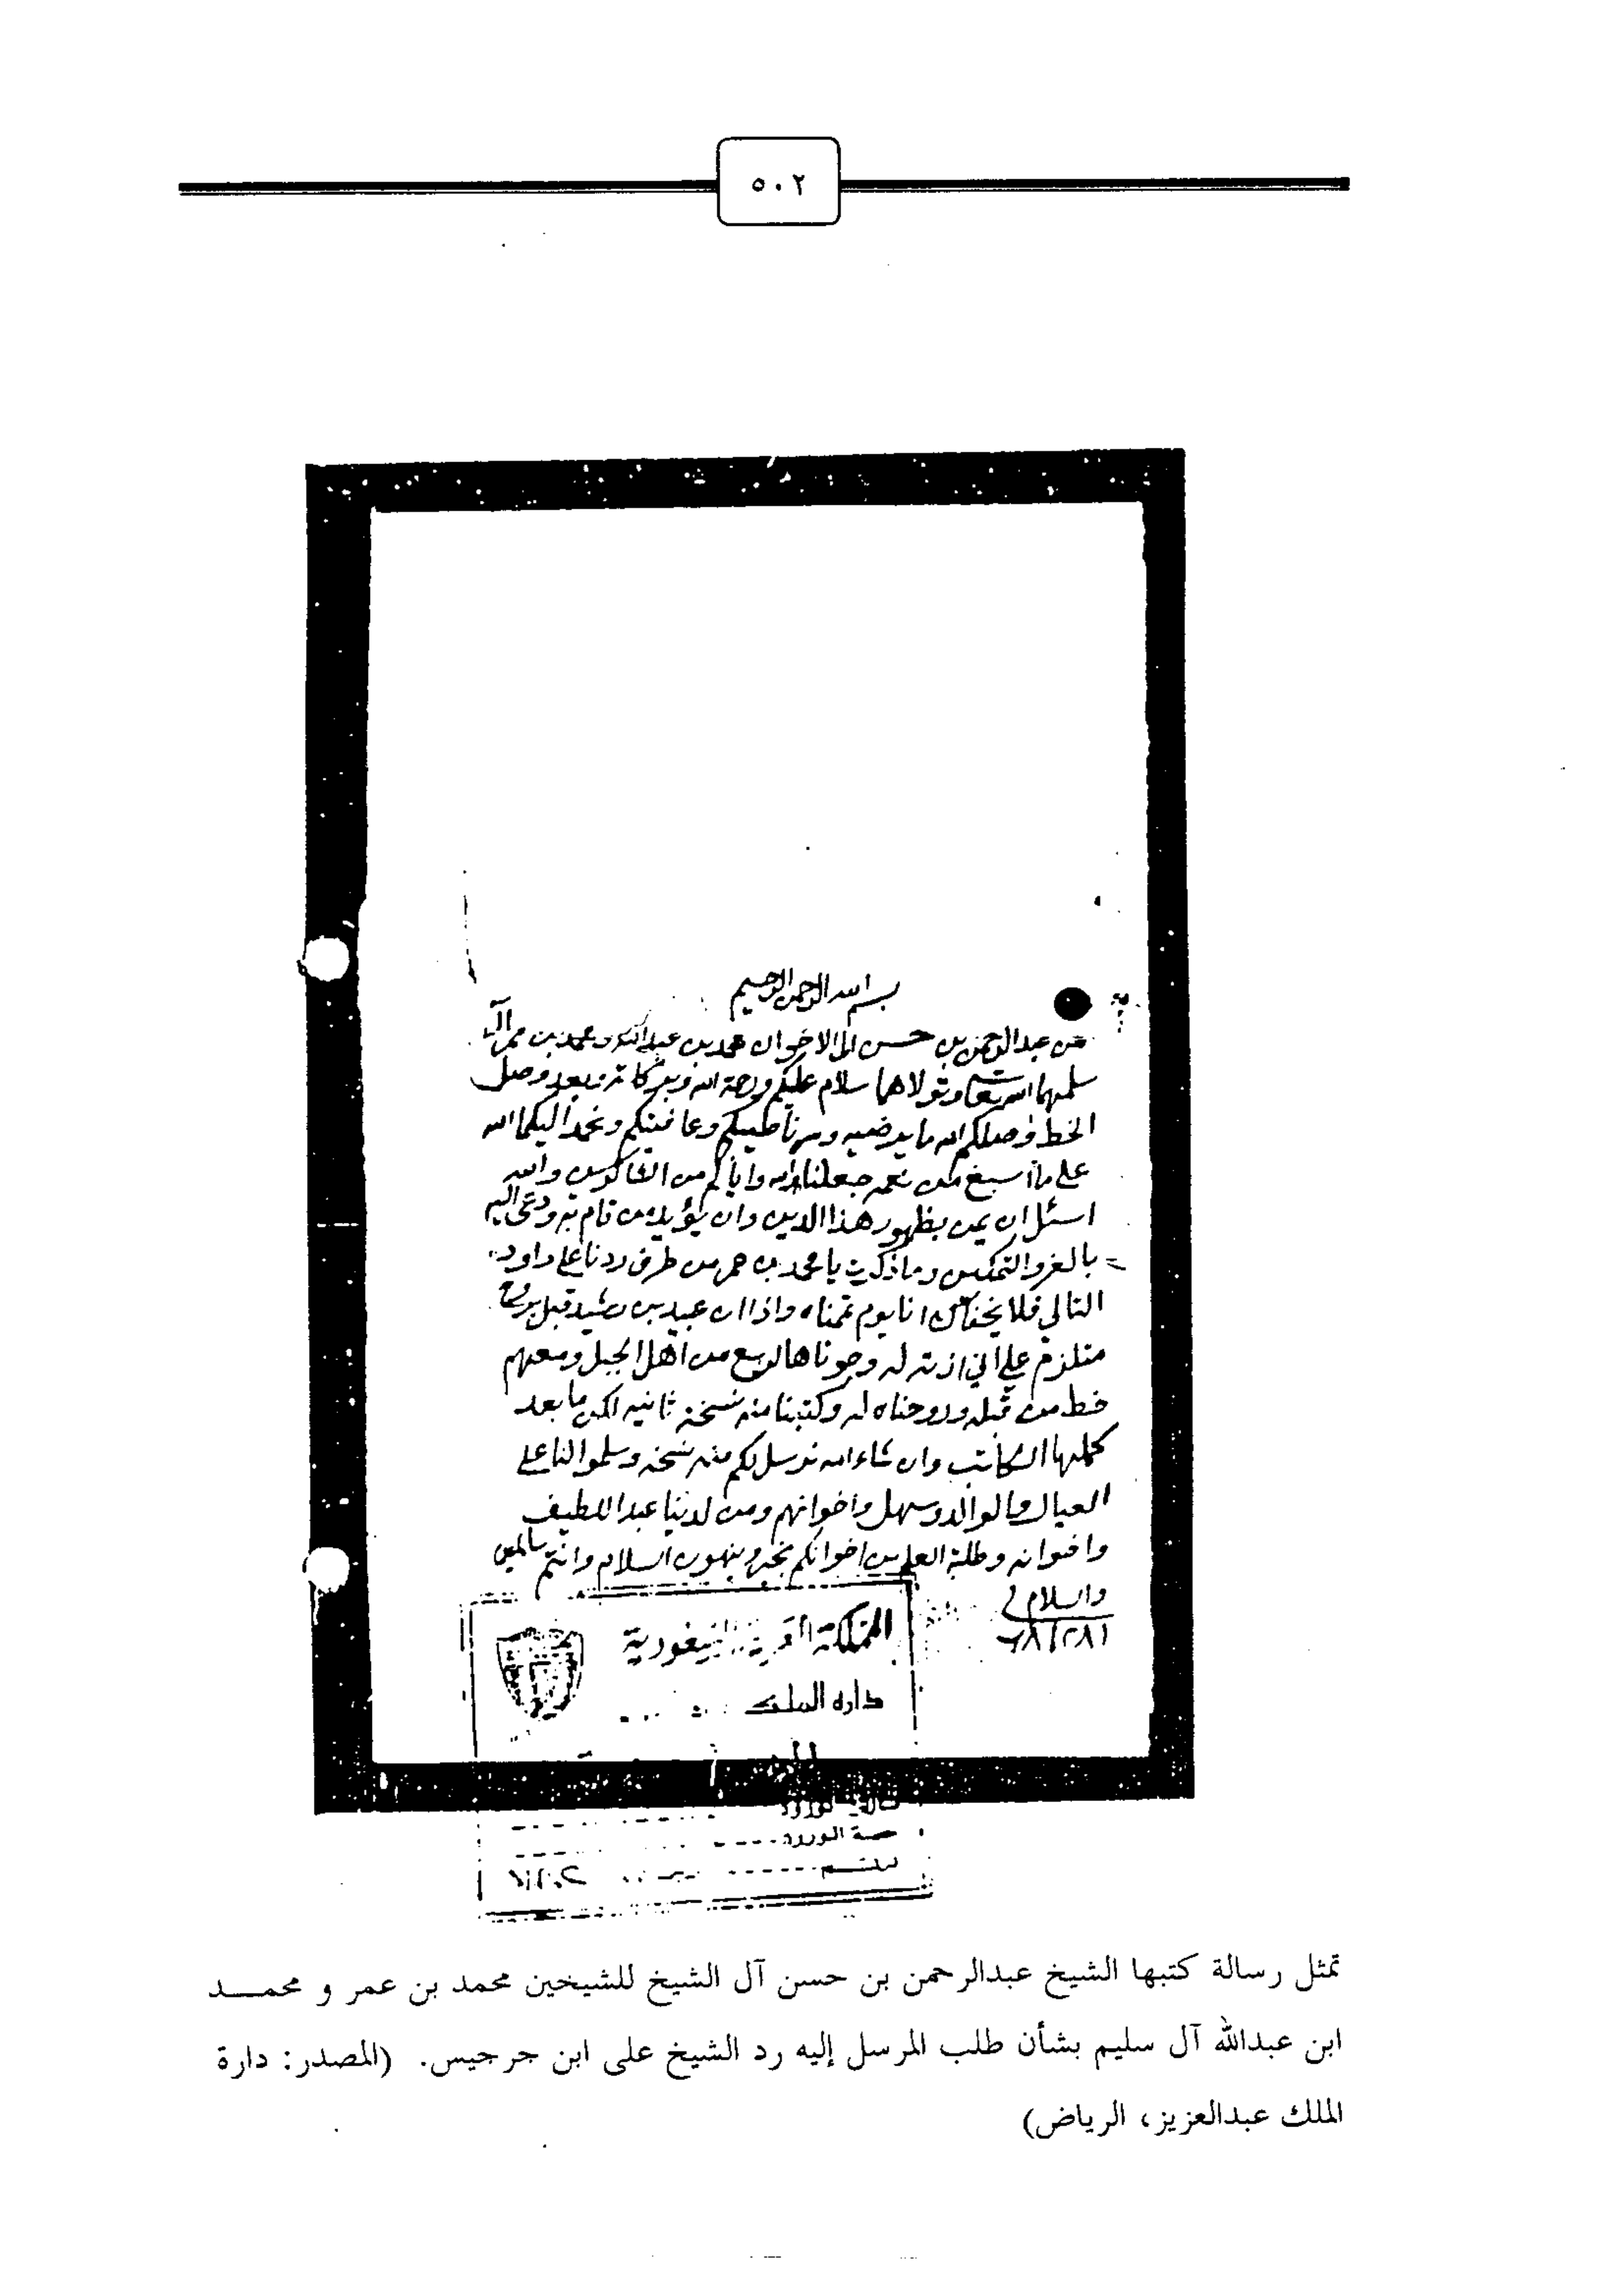 ٥٠٢
بسم الله الرحمن الرحيم
من عبدالرحمن بن حسن الى الاخوان محمد بن عبدالله ومحمد بن عمر آل
سليم سلمهما الله تعا وتولاهما سلام عليكم ورحمة الله وبركاته وبعد وصل
الخط وصلكم الله ما يرضيه وسرنا طيبكم وعافيتكم ونحمد اليكما الله
على ما اسبغ من نعمه جعلنا الله واياكم من الشاكرين والله
اسئل ان يمن بظهور هذا الدين وان يؤيد من قام به ودعى اليه
بالعز والتمكين وما ذكرت يا محمد بن عمر من طرف ردنا على داود
التالي فلا يخفاك انا يوم تممناه واذا ان عبيد بن رشيد قبل
متلزم علي اني ارسله له وجونا هالربع من اهل الجبل ومعهم
خط من قبله وروحناه له وكتبنا منه نسخة ثانيه لكن ما بعد
كملها الكاتب وان شاء الله نرسل لكم منه نسخه وسلموا لنا على
العيال والوالد وسهل واخوانهم ومن لدينا عبداللطيف
واخوانه وطلبة العلم من اخوانكم بخير وينهون السلام وانتم سالمين
والسلام
المملكة العربية السعودية
دارة الملك
تمثل رسالة كتبها الشيخ عبدالرحمن بن حسن آل الشيخ للشيخين محمد بن عمر و محمـــد
ابن عبدالله آل سليم بشأن طلب المرسل إليه رد الشيخ على ابن جرجيس. (المصدر: دارة
الملك عبدالعزيز، الرياض)